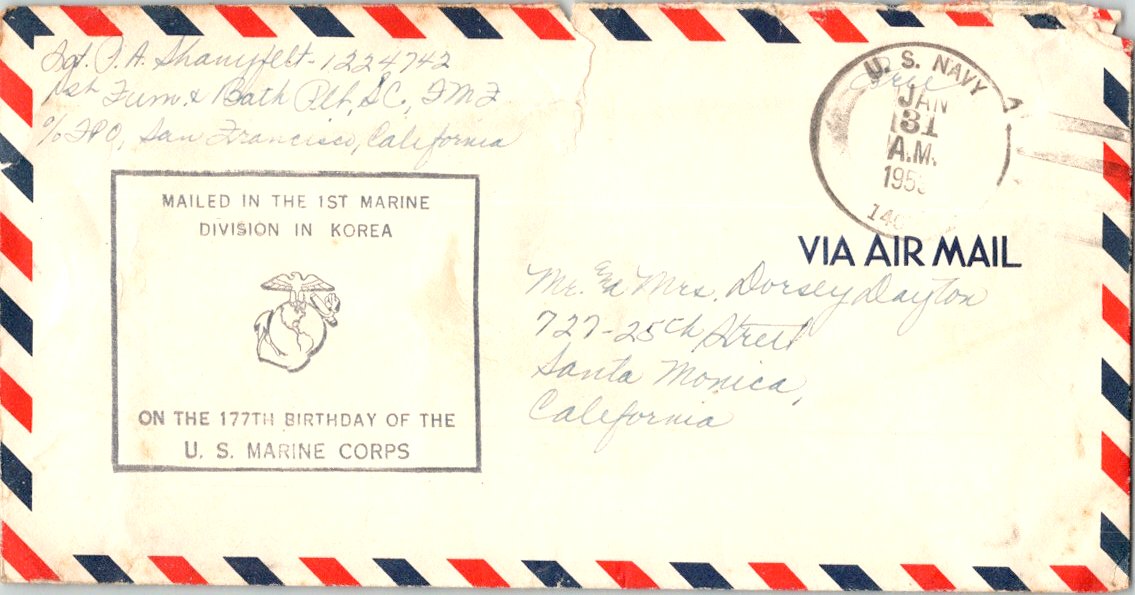 Sgt. P. A. Shanyfelt - 1224742
1st Fum. & Bath Plt, SC, FMF
c/o FPO, San Francisco, California
Free
U. S. NAVY
JAN
31
A.M.
MAILED IN THE 1ST MARINE
DIVISION IN KOREA
ON THE 177TH BIRTHDAY OF THE
U. S. MARINE CORPS
VIA AIR MAIL
Mr. & Mrs. Dorsey Dayton
727-25th Street
Santa Monica,
California